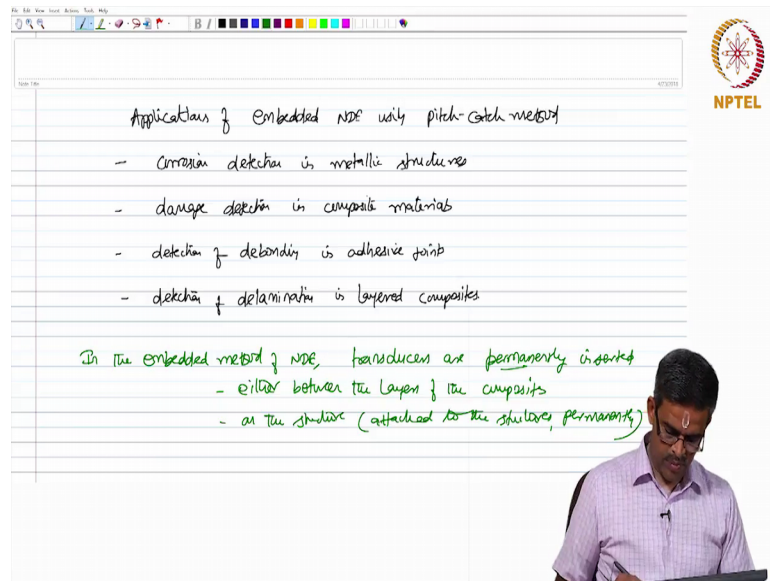 File Edit View Insert Actions Tools Help
B I
Note Title
4/23/2018
NPTEL
Applications of embedded NDE using pitch-catch method
- corrosion detection in metallic structures
- damage detection in composite materials
- detection of debonding in adhesive joints
- detection of delamination in layered composites
In the embedded method of NDE, transducers are permanently inserted
- either between the layers of the composits
- on the structure (attached to the structures, permanently)